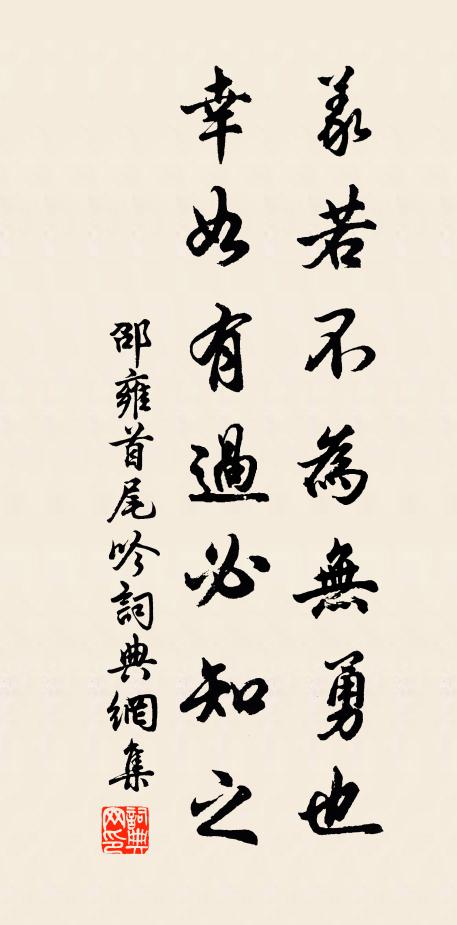 義若不為無勇也
幸如有過必知之
邵雍首尾吟詞典網集
詞典
网印